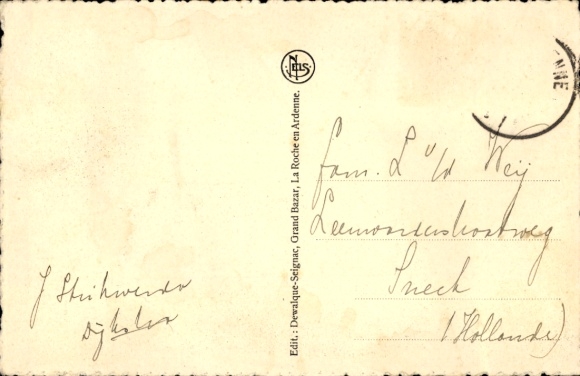 J Strikwerda
Dijkstra
Edit.: Dewalque-Seignac, Grand Bazar, La Roche en Ardenne.
NELS
ENNE
fam. L v/d Weij
Sneek
(Hollande)